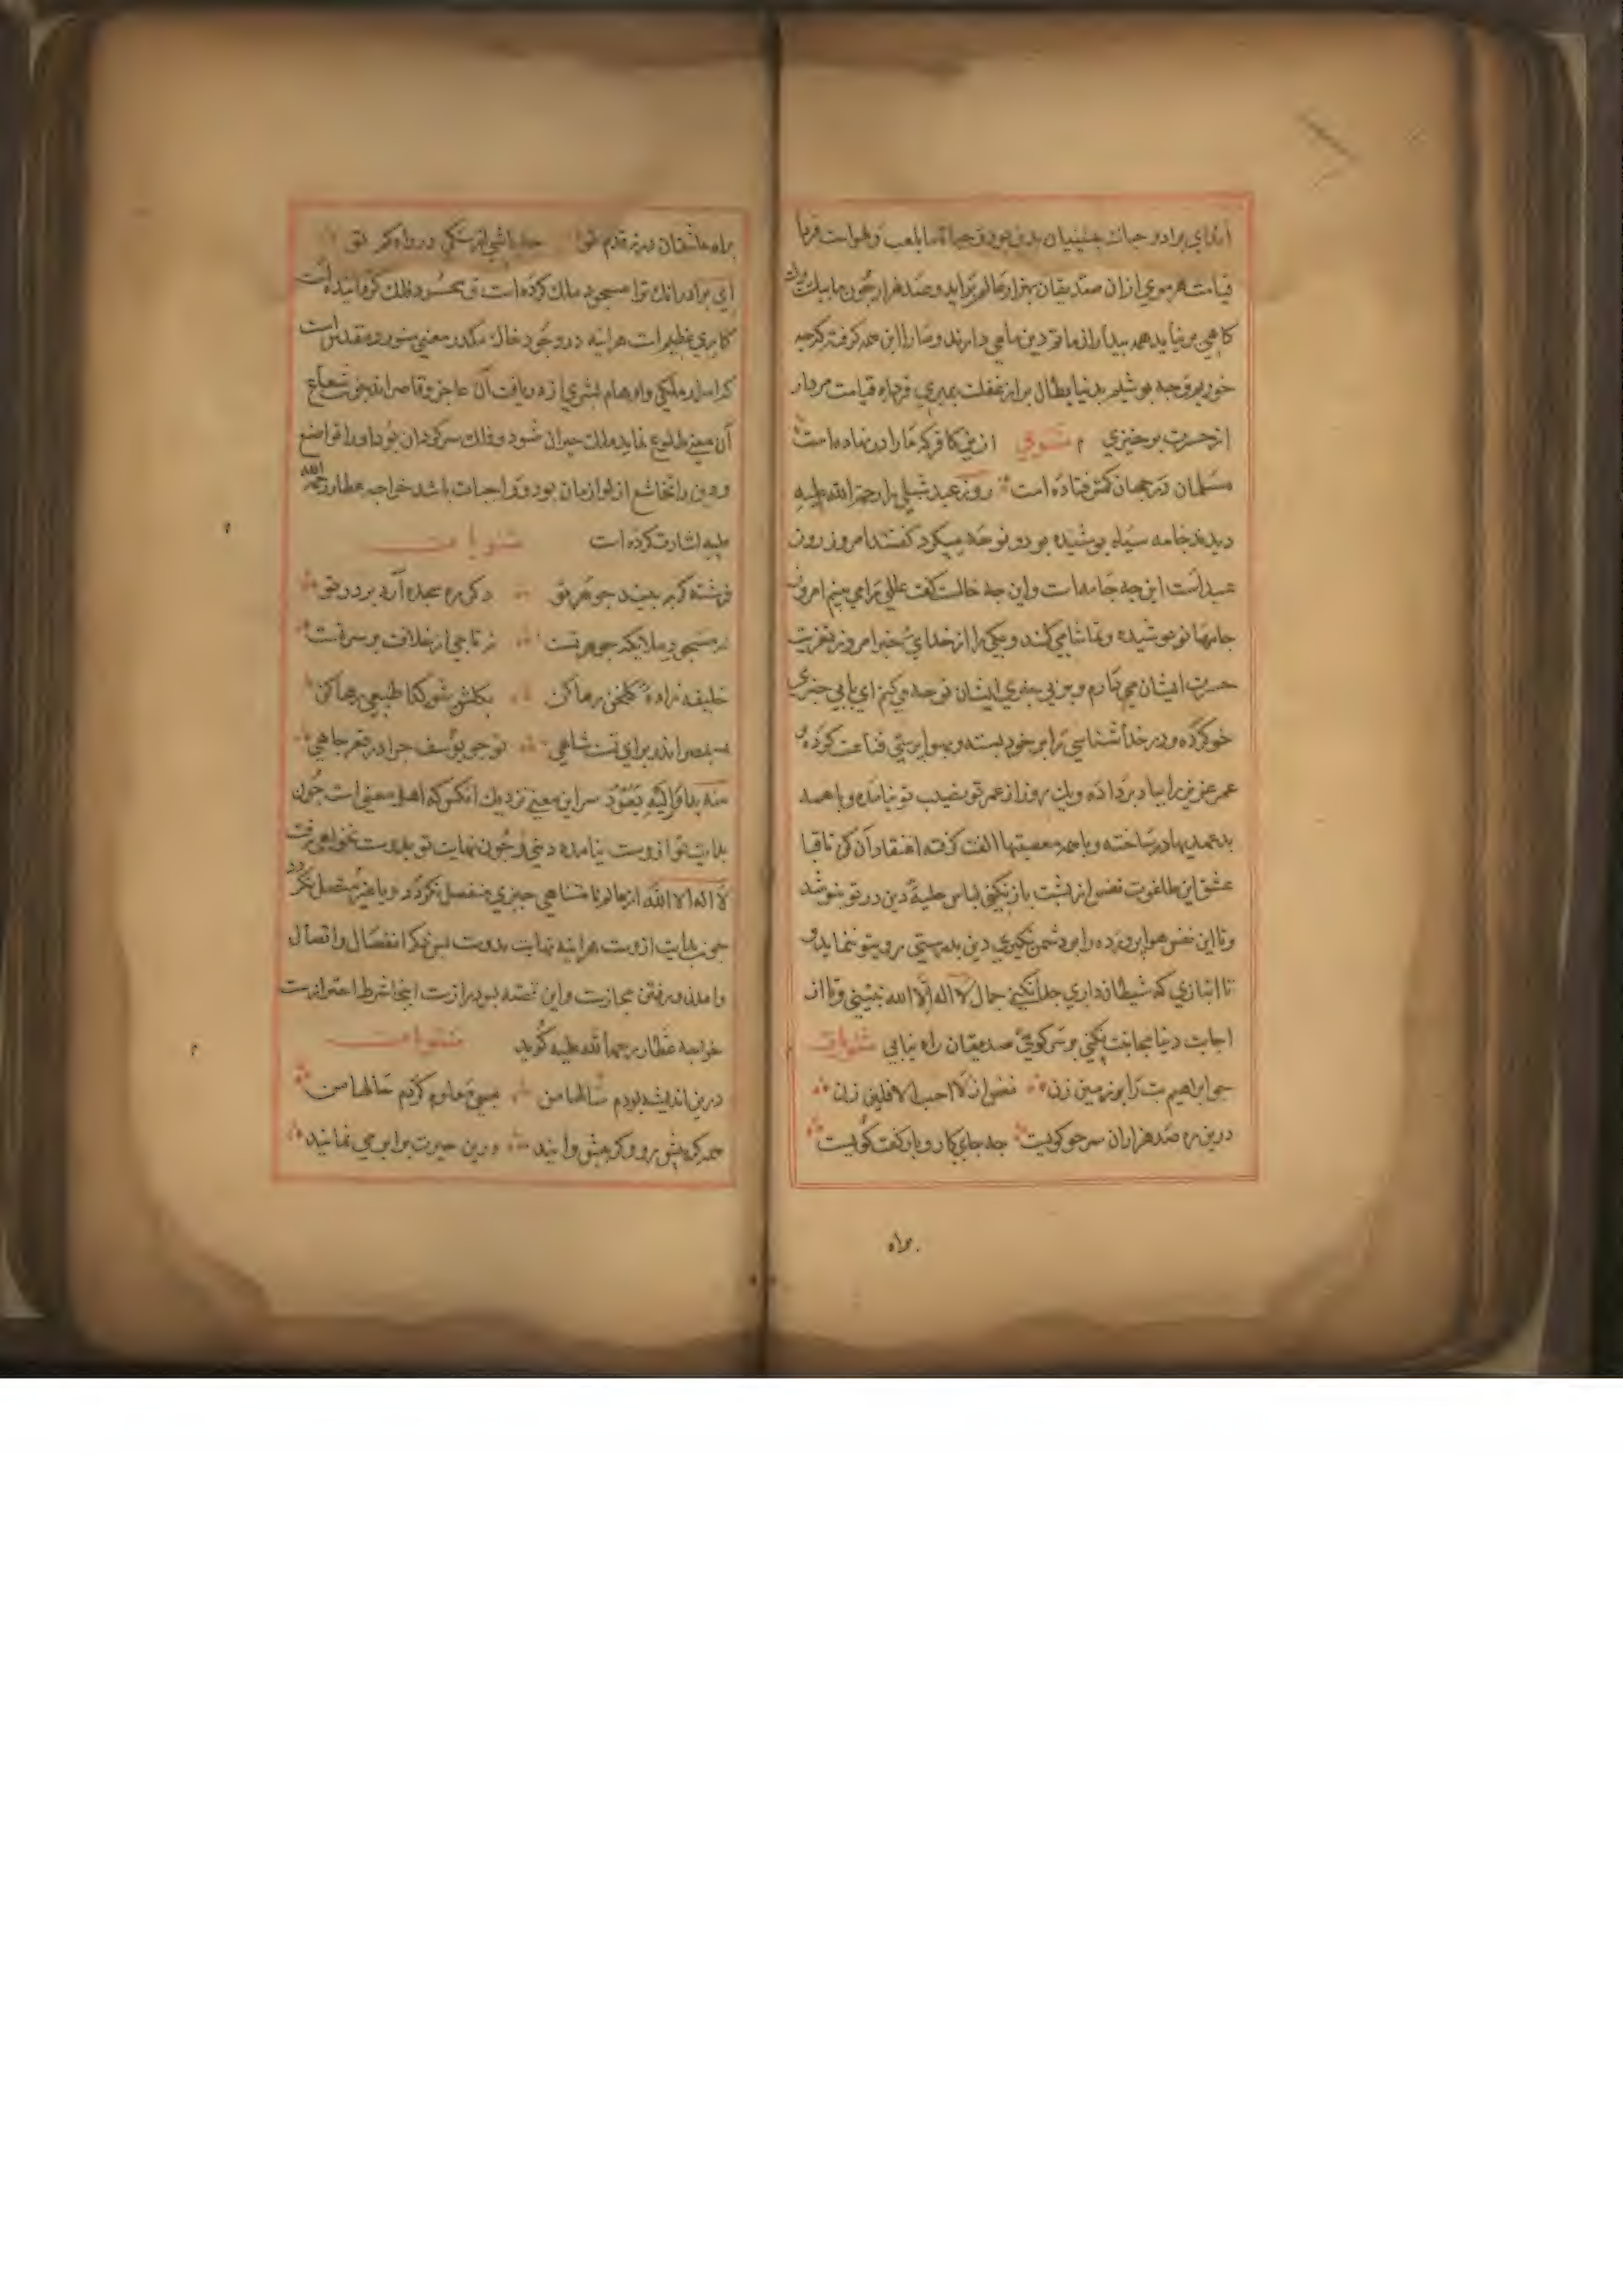 ای برادر حیات چنینیان بدین بود و حیاة ما بلعب و لهو است فردا
قیامت هر موی از ان صدیقان بهزار عالم برآید و صد هزار چون ما بیک برك
کاهی بر نیاید همه بیدار از ماتم دین ما می دارند و ما را این همه گرفته که چه
خوریم و چه پوشیم بدنیا بطال برآز غفلت بمیری فرداء قیامت مردار
از حسرت برخیزی مثنوی ازین کافر که ما را در نهاده است
مسلمان در جهان کمتر فتاده است روز عید شبلی را رحمة الله علیه
دیدند جامه سیاه پوشیده بود و نوحه میکرد گفتند امروز روز
عید است این چه جامه است و این چه حالت گفت خلق را می بینم امروز
جامها نو پوشیده و تماشا می کنند و یکی را از خدای خبر نه امروز تعزیت
حسرت ایشان می دارم و بر بی خبری ایشان نوحه می کنم ای با بی خبری
خو کرده و در خدا شناسی را بر خود بسته و بهوا پرستی قناعت کرده و
عمر عزیز را بباد بر داده و یک روز از عمر تو نصیب تو نیامده و با همه
بد عهدیها در ساخته و با همه معصیتها الفت گرفته اعتقاد آن کن تا قبا
عشق این طاغوت نفس از پشت باز نکنی لباس حلیهٔ دین در تو نپوشد
و تا این نفس هوا پرورده را بر دشمن نگیری دین بدرستی رو بتو ننماید و
تا انبازی که شیطان داری جدا نکنی جمال لا اله الا الله نبینی و تا از
اجابت دنیا بجانب نکنی و سر کوی صدیقان راه نیابی مثنویات
چو ابراهیم بت را بر زمین زن نفس از لا احب الافلین زن
درین ره صد هزاران سر چو گویست چه جای کار و بار گفت گویست
براه
براه عاشقان در نه قدم تو
ای برادر انك ترا مسجود ملك کرده است و محسود فلك گردانیده است
کاری عظیم است هراینه در وجود خاك مکدر معنی منور و مقدس است
که اسرار ملکی و اوهام بشری از دریافت آن عاجز و قاصر اند چون شعاع
آن معنی طلوع نماید ملك حیران شود و فلك سرگردان بود او را تواضع
و دین را تخاشع از لوازمات بود و واجبات باشد خواجه عطار رحمة الله
علیه اشارت کرده است مثنویات
فرشته گر ببیند جوهر تو دگر ره سجده آرد بر در تو
نه مسجود ملایک جوهر تست نه تاجی از خلافت بر سر تست
خلیفه زادهٔ گلخن رها کن بگلشن شو گدا طبعی رها کن
بمصر اندر برای تست شاهی تو چو یوسف چرا در قعر چاهی
منه بدأ و الیه یعود سر این معنی نزدیك انکس که اهل معنی است چون
بدایت تو ازوست نیامده و چون نهایت تو بدوست نخواهی رفت
لا اله الا الله از عالم نا متناهی چیزی منفصل نگردد و با غیر متصل نگردد
چون بدایت ازوست هراینه نهایت بدوست پس ذکر انفصال و اتصال
و امدن و رفتن مجازیست و این قصه بس درازست اینجا شرط احترازست
خواجه عطار رحمة الله علیه گوید مثنویات
درین اندیشه بودم سالها من بسی معلوم کردم حالها من
همه گر پیش رو و گر پیشوایند درین حیرت برابر می نمایند